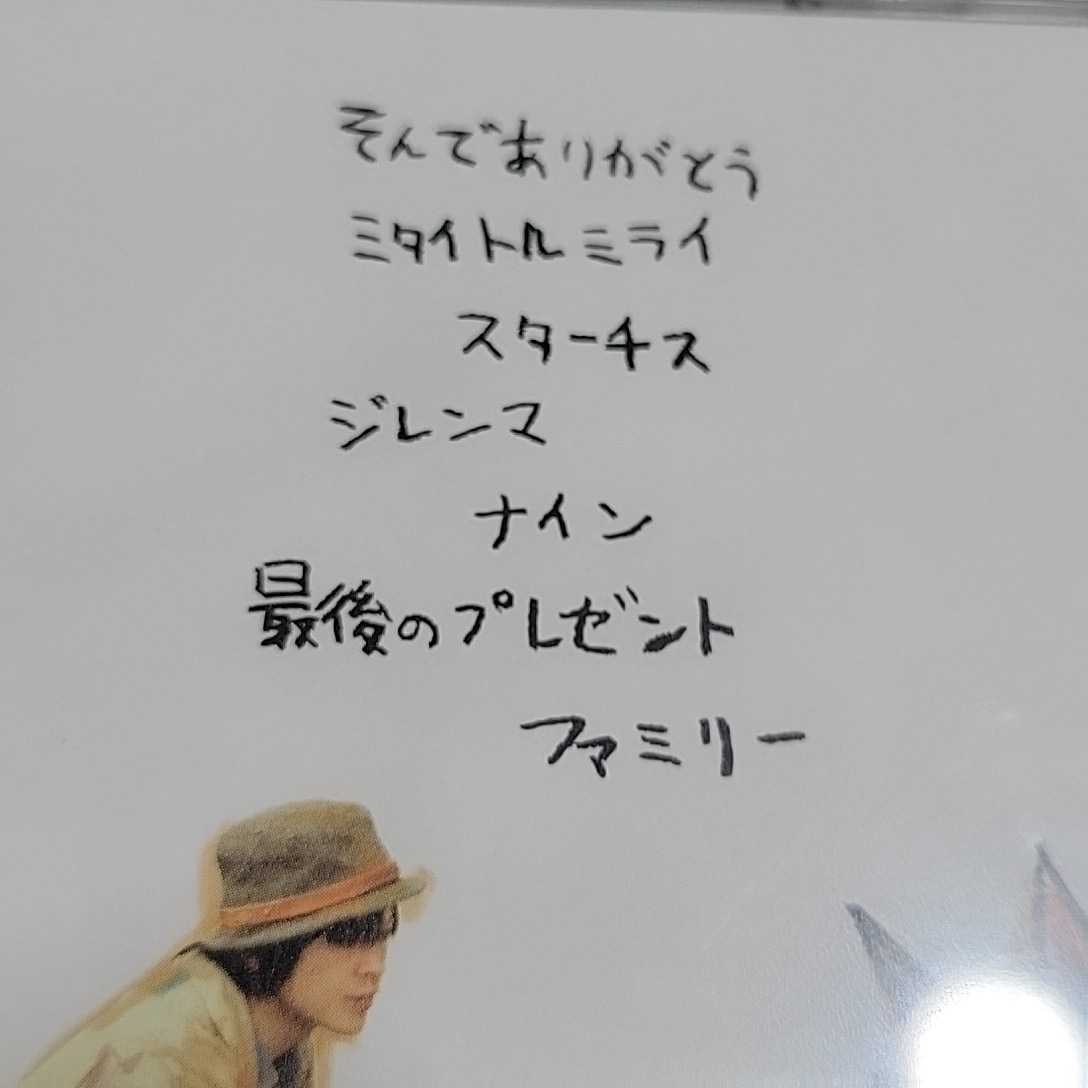 そんでありがとう
ミタイトルミライ
スターチス
ジレンマ
ナイン
最後のプレゼント
ファミリー